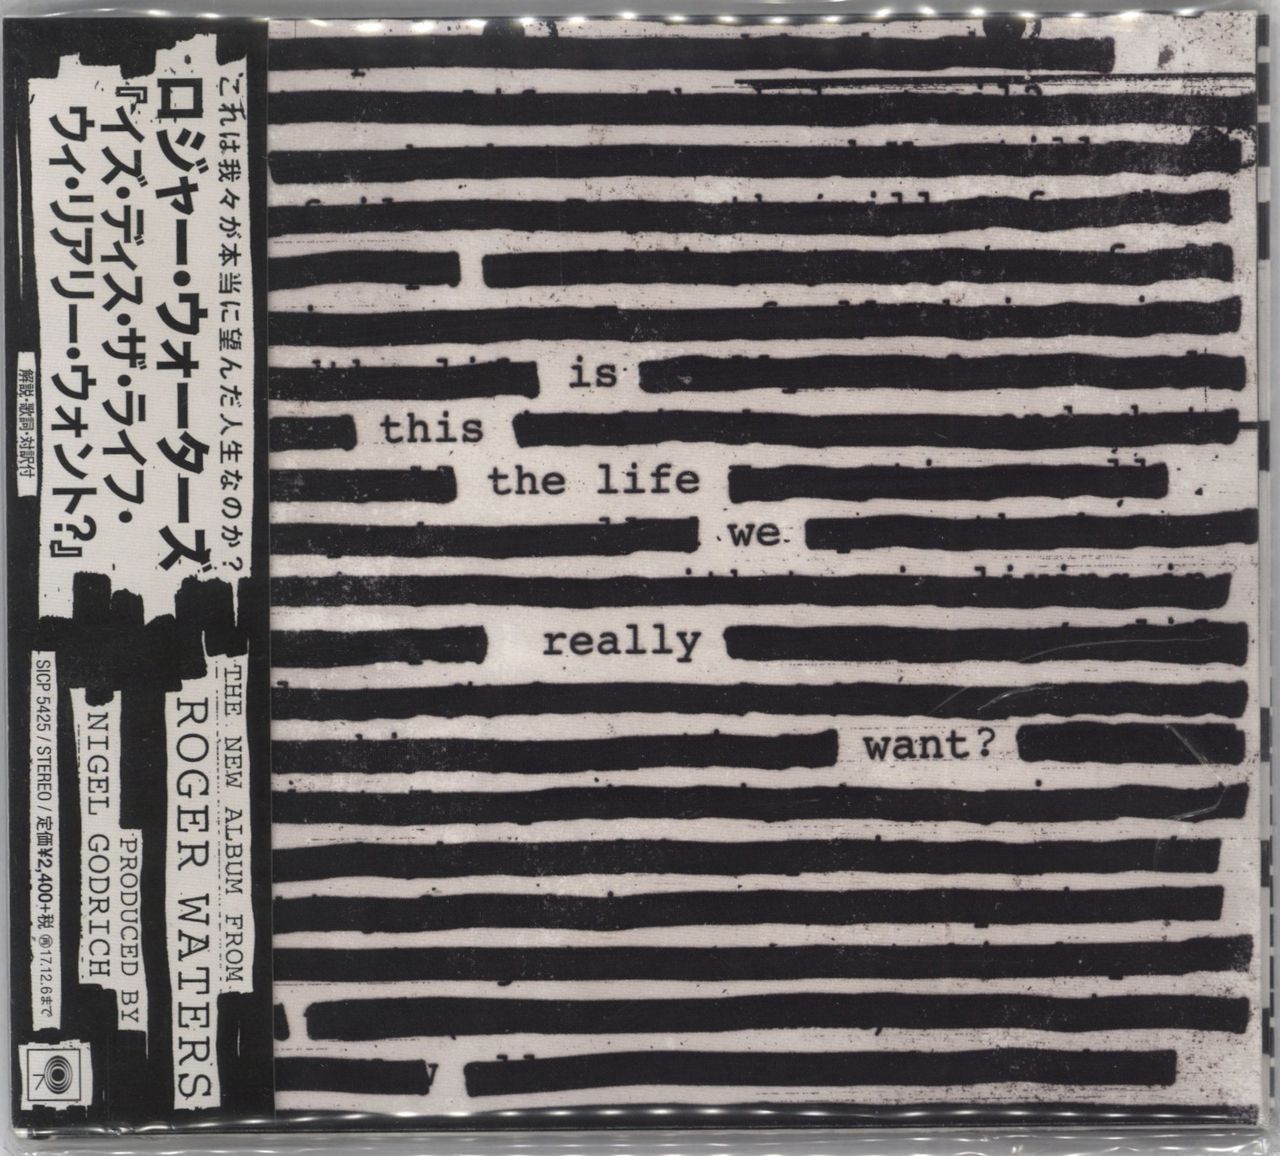 これは我々が本当に望んだ人生なのか?
ロジャー・ウォーターズ
『イズ・ディス・ザ・ライフ・
ウィ・リアリー・ウォント?』
解説・歌詞・対訳付
THE NEW ALBUM FROM
ROGER WATERS
PRODUCED BY
NIGEL GODRICH
SICP 5425 / STEREO / 定価¥2,400+税 17.12.6まで
is
this
the life
we
really
want?